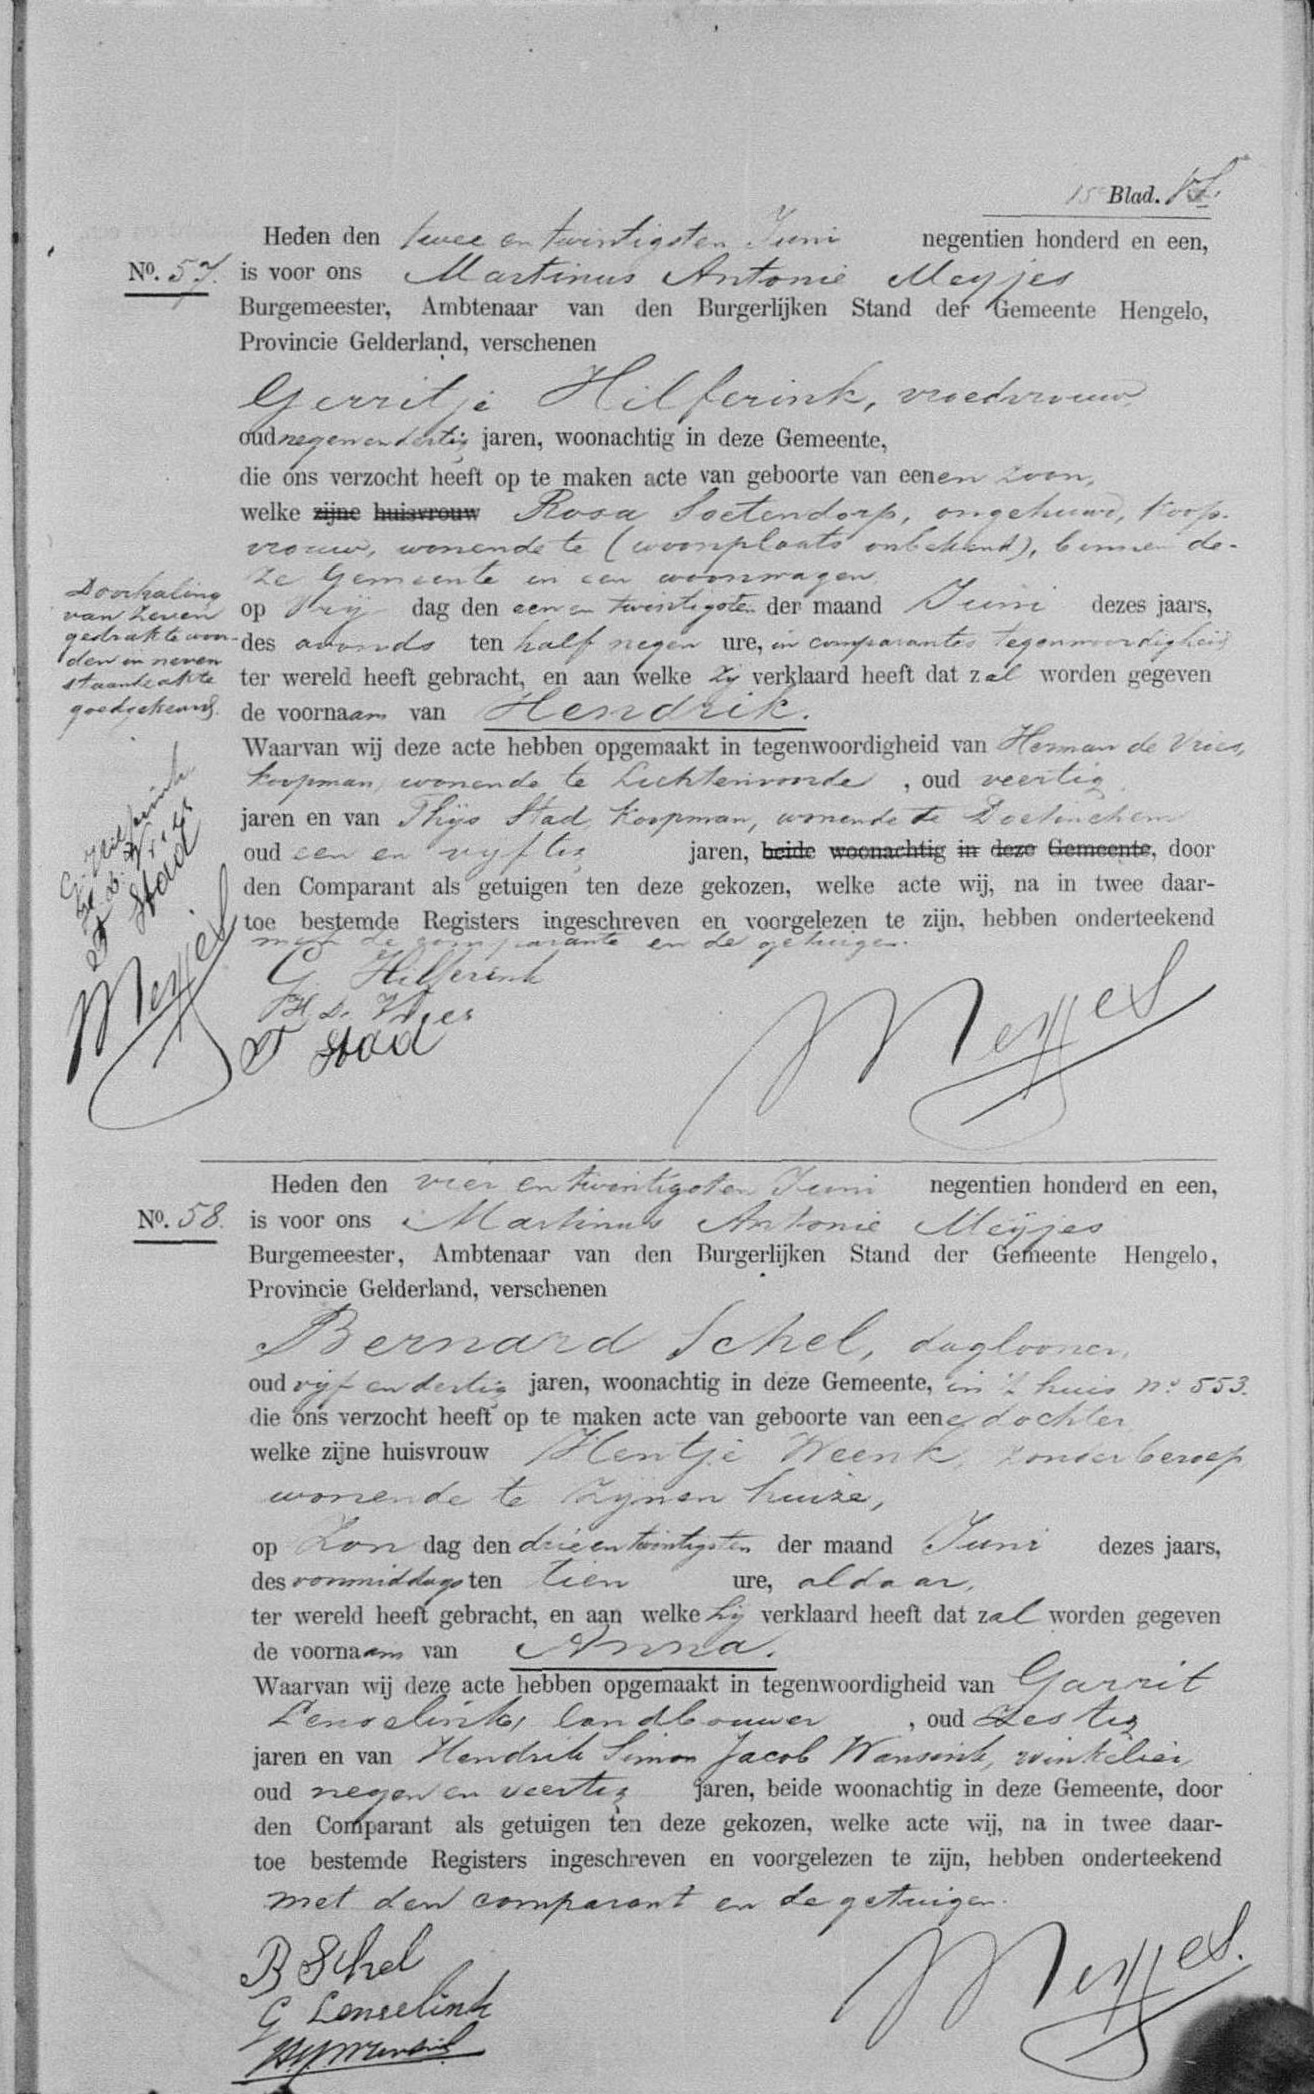 15e Blad.
Heden den twee en twintigsten Juni negentien honderd en een,
No. 57. is voor ons Martinus Antonie Meyjes
Burgemeester, Ambtenaar van den Burgerlijken Stand der Gemeente Hengelo,
Provincie Gelderland, verschenen
Gerritje Hilferink, vroedvrouw,
oud negen en dertig jaren, woonachtig in deze Gemeente,
die ons verzocht heeft op te maken acte van geboorte van eenen zoon,
welke zijne huisvrouw Rosa Soetendorp, ongehuwd, koop-
vrouw, wonende te (woonplaats onbekend), binnen de-
ze Gemeente in een woonwagen
op Vrij dag den een en twintigsten der maand Juni dezes jaars,
des avonds ten half negen ure, in comparantes tegenwoordigheid
ter wereld heeft gebracht, en aan welke zij verklaard heeft dat zal worden gegeven
de voornaam van Hendrik.
Waarvan wij deze acte hebben opgemaakt in tegenwoordigheid van Herman de Vries,
koopman, wonende te Lichtenvoorde, oud veertig
jaren en van Thijs Stad, koopman, wonende te Doetinchem
oud een en vijftig jaren, beide woonachtig in deze Gemeente, door
den Comparant als getuigen ten deze gekozen, welke acte wij, na in twee daar-
toe bestemde Registers ingeschreven en voorgelezen te zijn, hebben onderteekend
met de comparante en de getuigen.
Doorhaling
van zeven
gedrukte woor-
den in neven
staande akte
goedgekeurd.
G. Hilferink
H. d. Vries
T Stad
Meyjes
G Hilferink
H. d. Vries
T Stad
Meyjes
Heden den vier en twintigsten Juni negentien honderd en een,
No. 58. is voor ons Martinus Antonie Meyjes
Burgemeester, Ambtenaar van den Burgerlijken Stand der Gemeente Hengelo,
Provincie Gelderland, verschenen
Bernard Schel, daglooner,
oud vijf en dertig jaren, woonachtig in deze Gemeente, in 't huis no. 553.
die ons verzocht heeft op te maken acte van geboorte van eene dochter
welke zijne huisvrouw Hentje Weenk, zonder beroep
wonende te zijnen huize,
op Zon dag den drie en twintigsten der maand Juni dezes jaars,
des voormiddags ten tien ure, aldaar,
ter wereld heeft gebracht, en aan welke hij verklaard heeft dat zal worden gegeven
de voornaam van Anna.
Waarvan wij deze acte hebben opgemaakt in tegenwoordigheid van Garrit
Lenselink, landbouwer, oud zestig
jaren en van Hendrik Simon Jacob Wansink, winkelier,
oud negen en veertig jaren, beide woonachtig in deze Gemeente, door
den Comparant als getuigen ten deze gekozen, welke acte wij, na in twee daar-
toe bestemde Registers ingeschreven en voorgelezen te zijn, hebben onderteekend
met den comparant en de getuigen.
B Schel
G Lenselink
Meyjes.